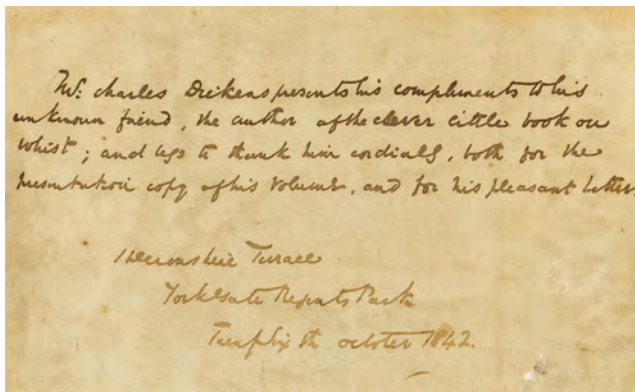 Mr. Charles Dickens presents his compliments to his
unknown friend, the author of the clever little book on
Whist; and begs to thank him cordially, both for the
presentation copy of his volume, and for his pleasant letter.
Devonshire Terrace
York Gate Regents Park
Twenty Sixth October 1842.